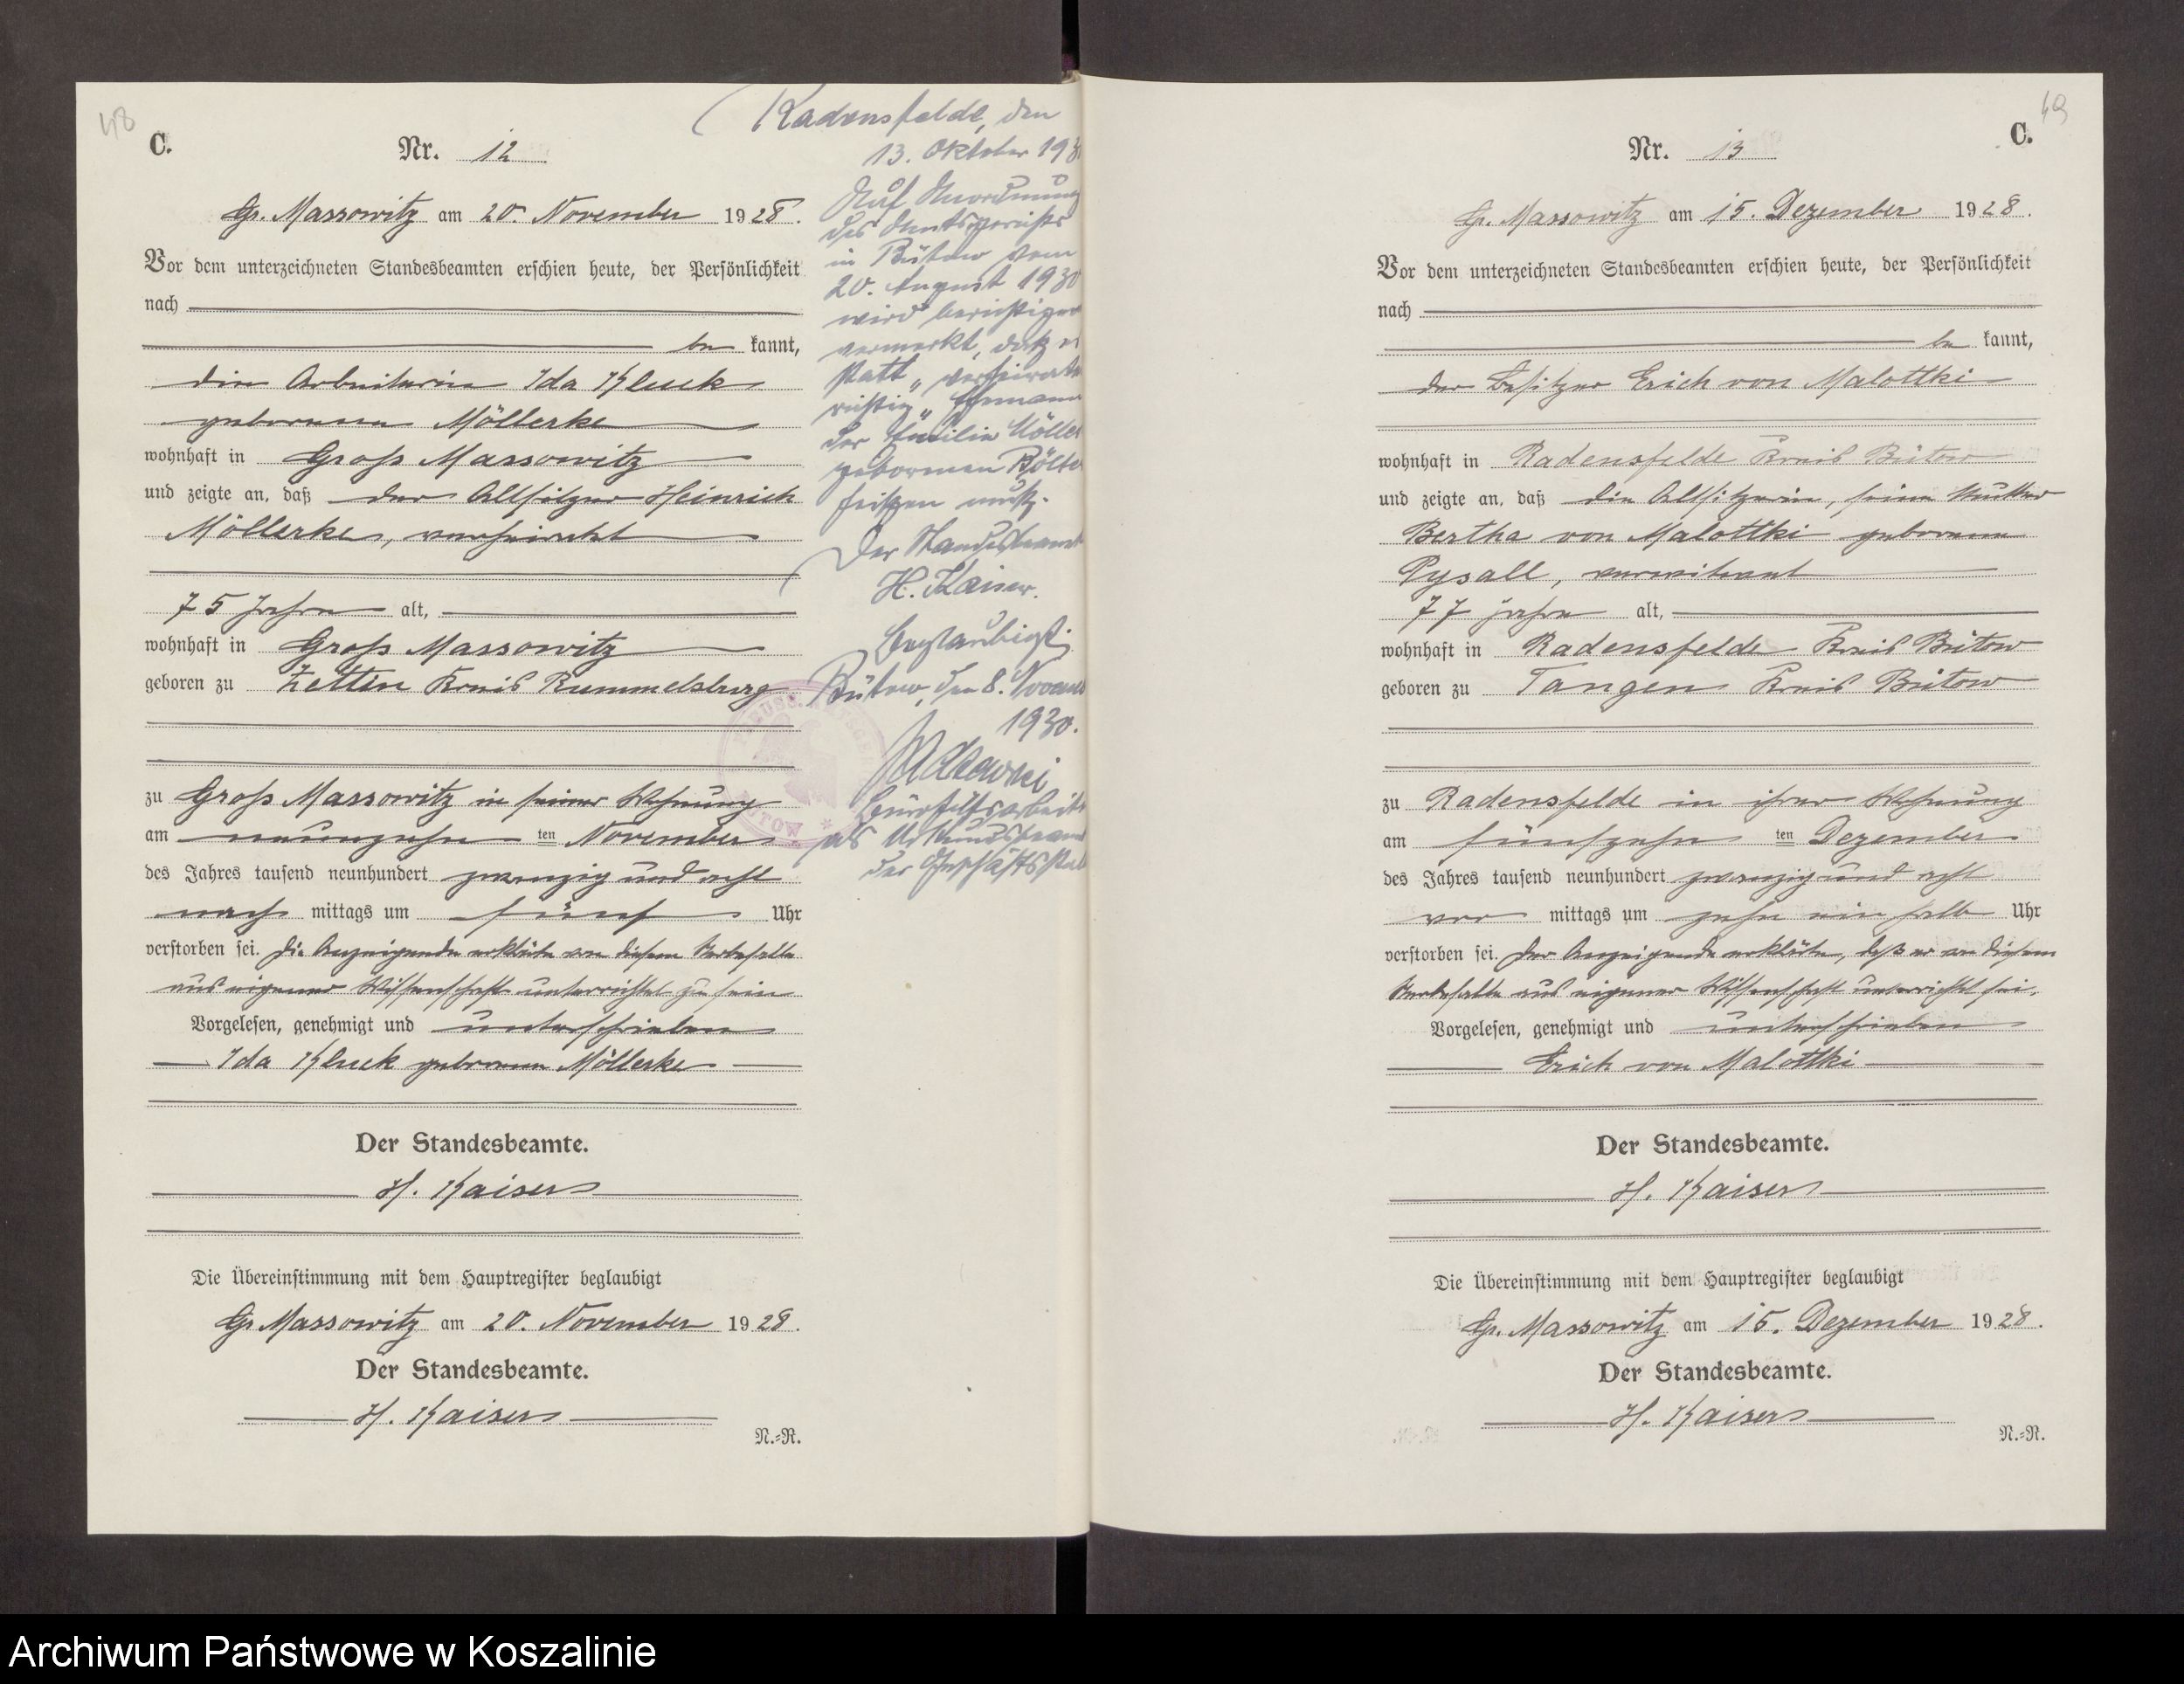 48
C.
Nr. 12
Gr. Massowitz am 20. November 1928.
Vor dem unterzeichneten Standesbeamten erschien heute, der Persönlichkeit
nach
be kannt,
die Arbeiterin Ida Kluck
geborene Möllerke
wohnhaft in Groß Massowitz
und zeigte an, daß der Altsitzer Heinrich
Möllerke, verheiratet
75 Jahre alt,
wohnhaft in Groß Massowitz
geboren zu Zettin Kreis Rummelsburg
zu Groß Massowitz in seiner Wohnung
am neunzehn ten November
des Jahres tausend neunhundert zwanzig und acht
nach mittags um fünf Uhr
verstorben sei. Die Anzeigende erklärte von diesem Sterbefalle
aus eigener Wissenschaft unterrichtet zu sein
Vorgelesen, genehmigt und unterschrieben
Ida Kluck geborene Möllerke
Der Standesbeamte.
H. Kaiser
Die Übereinstimmung mit dem Hauptregister beglaubigt
Gr. Massowitz am 20. November 1928.
Der Standesbeamte.
H. Kaiser
N.=R.
Radensfelde, den
13. Oktober 193
Auf Anordnung
des Amtsgerichts
in Bütow vom
20. August 1930
wird berichtigend
vermerkt, daß es
statt „verheiratet
richtig „Ehemann
der Emilie Möller
geborenen
heißen muß.
Der Standesbeamte
H. Kaiser.
Beglaubigt:
Bütow, den 8. Novemb
1930.
Bürohilfsarbeiter
als Urkundsbeamt
der Geschäftsstel
BÜTOW
49
C.
Nr. 13
Gr. Massowitz am 15. Dezember 1928.
Vor dem unterzeichneten Standesbeamten erschien heute, der Persönlichkeit
nach
be kannt,
der Besitzer Erich von Malottki
wohnhaft in Radensfelde Kreis Bütow
und zeigte an, daß die Altsitzerin, seine Mutter
Bertha von Malottki geborene
Pysall, verwitwet
77 Jahre alt,
wohnhaft in Radensfelde Kreis Bütow
geboren zu Tangen Kreis Bütow
zu Radensfelde in ihrer Wohnung
am fünfzehn ten Dezember
des Jahres tausend neunhundert zwanzig und acht
vor mittags um zehn ein halb Uhr
verstorben sei. Der Anzeigende erklärte, daß er von diesem
Sterbefalle aus eigener Wissenschaft unterrichtet sei.
Vorgelesen, genehmigt und unterschrieben
Erich von Malottki
Der Standesbeamte.
H. Kaiser
Die Übereinstimmung mit dem Hauptregister beglaubigt
Gr. Massowitz am 15. Dezember 1928.
Der Standesbeamte.
H. Kaiser
N.=R.
Archiwum Państwowe w Koszalinie